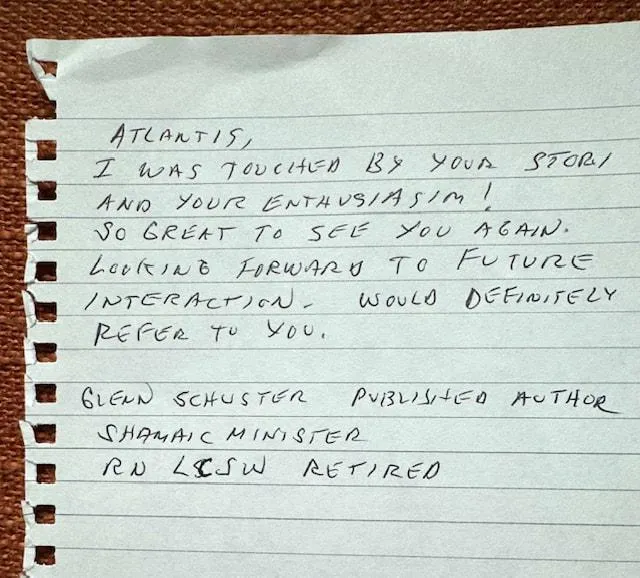 ATLANTIS,
I WAS TOUCHED BY YOUR STORY
AND YOUR ENTHUSIASIM!
SO GREAT TO SEE YOU AGAIN.
LOOKING FORWARD TO FUTURE
INTERACTION. WOULD DEFINITELY
REFER TO YOU.
GLENN SCHUSTER PUBLISHED AUTHOR
SHAMAIC MINISTER
RN LCSW RETIRED